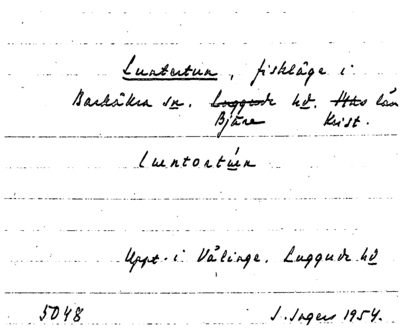 Luntertun, fiskläge i
Barkåkra sn. Luggude hd. Hbs län
Bjäre Krist.
Luntortún
Uppt. i Välinge. Luggude hd
5048 S. Ingers 1954.